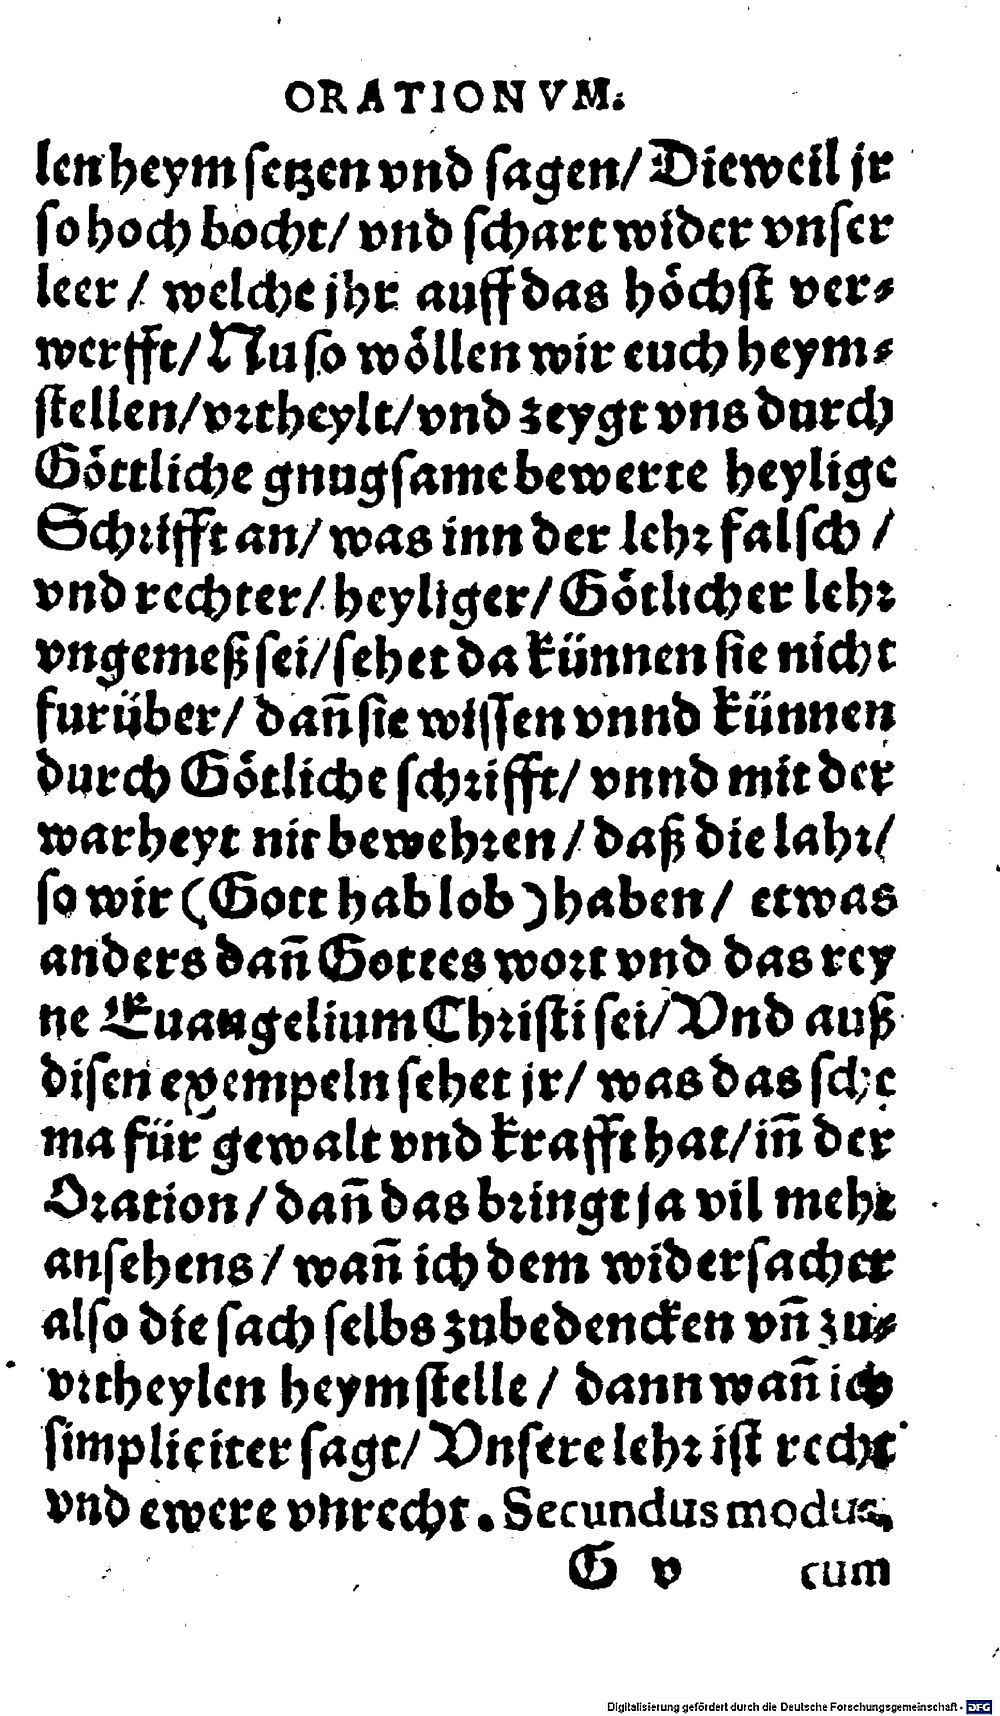 ORATIONVM.
len heym setzen vnd sagen/ Dieweil jr
so hoch bocht/ vnd schart wider vnser
leer/ welche jhr auff das höchst ver⸗
werfft/ Nu so wöllen wir euch heym⸗
stellen/ vrtheylt/ vnd zeygt vns durch
Göttliche gnugsame bewerte heylige
Schrifft an/ was inn der lehr falsch /
vnd rechter/ heyliger/ Götlicher lehr
vngemeß sei/ sehet da künnen sie nicht
furüber/ dañ sie wissen vnnd künnen
durch Götliche schrifft/ vnnd mit der
warheyt nit bewehren/ daß die lahr/
so wir (Gott hab lob) haben/ etwas
anders dañ Gottes wort vnd das rey
ne Euangelium Christi sei/ Vnd auß
disen exempeln sehet jr/ was das sche
ma für gewalt vnd krafft hat/ iñ der
Oration/ dañ das bringt ja vil mehr
ansehens/ wañ ich dem widersacher
also die sach selbs zubedencken vñ zu⸗
vrtheylen heymstelle/ dann wañ ich
simpliciter sagt/ Vnsere lehr ist recht
vnd ewere vnrecht. Secundus modus,
G v cum
Digitalisierung gefördert durch die Deutsche Forschungsgemeinschaft - DFG